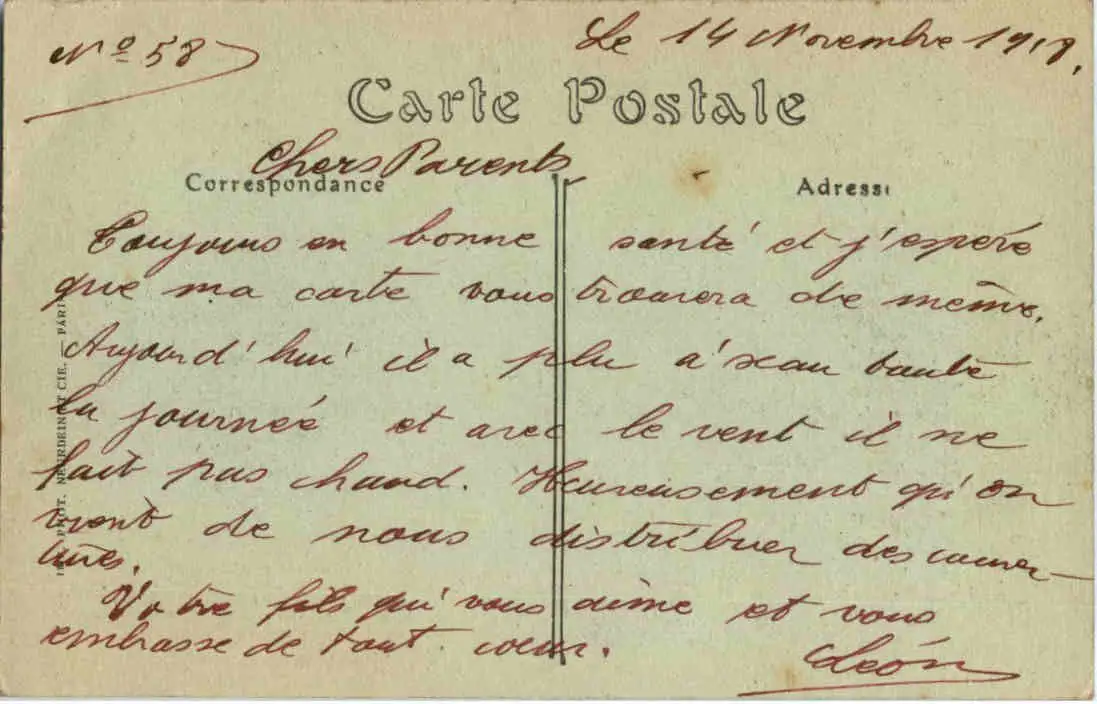 Nº 58
Le 14 Novembre 1918.
Carte Postale
Chers Parents
Correspondance
Adresse
Toujours en bonne santé et j'espère
que ma carte vous trouvera de même.
Aujourd'hui il a plu a'seau toute
la journée et avec le vent il ne
fait pas chaud. Heureusement qu'on
vient de nous distribuer des couver-
tures.
Votre fils qui vous aime et vous
embrasse de tout cœur.
Léon
PHOT. NEURDEIN ET CIE. — PARIS